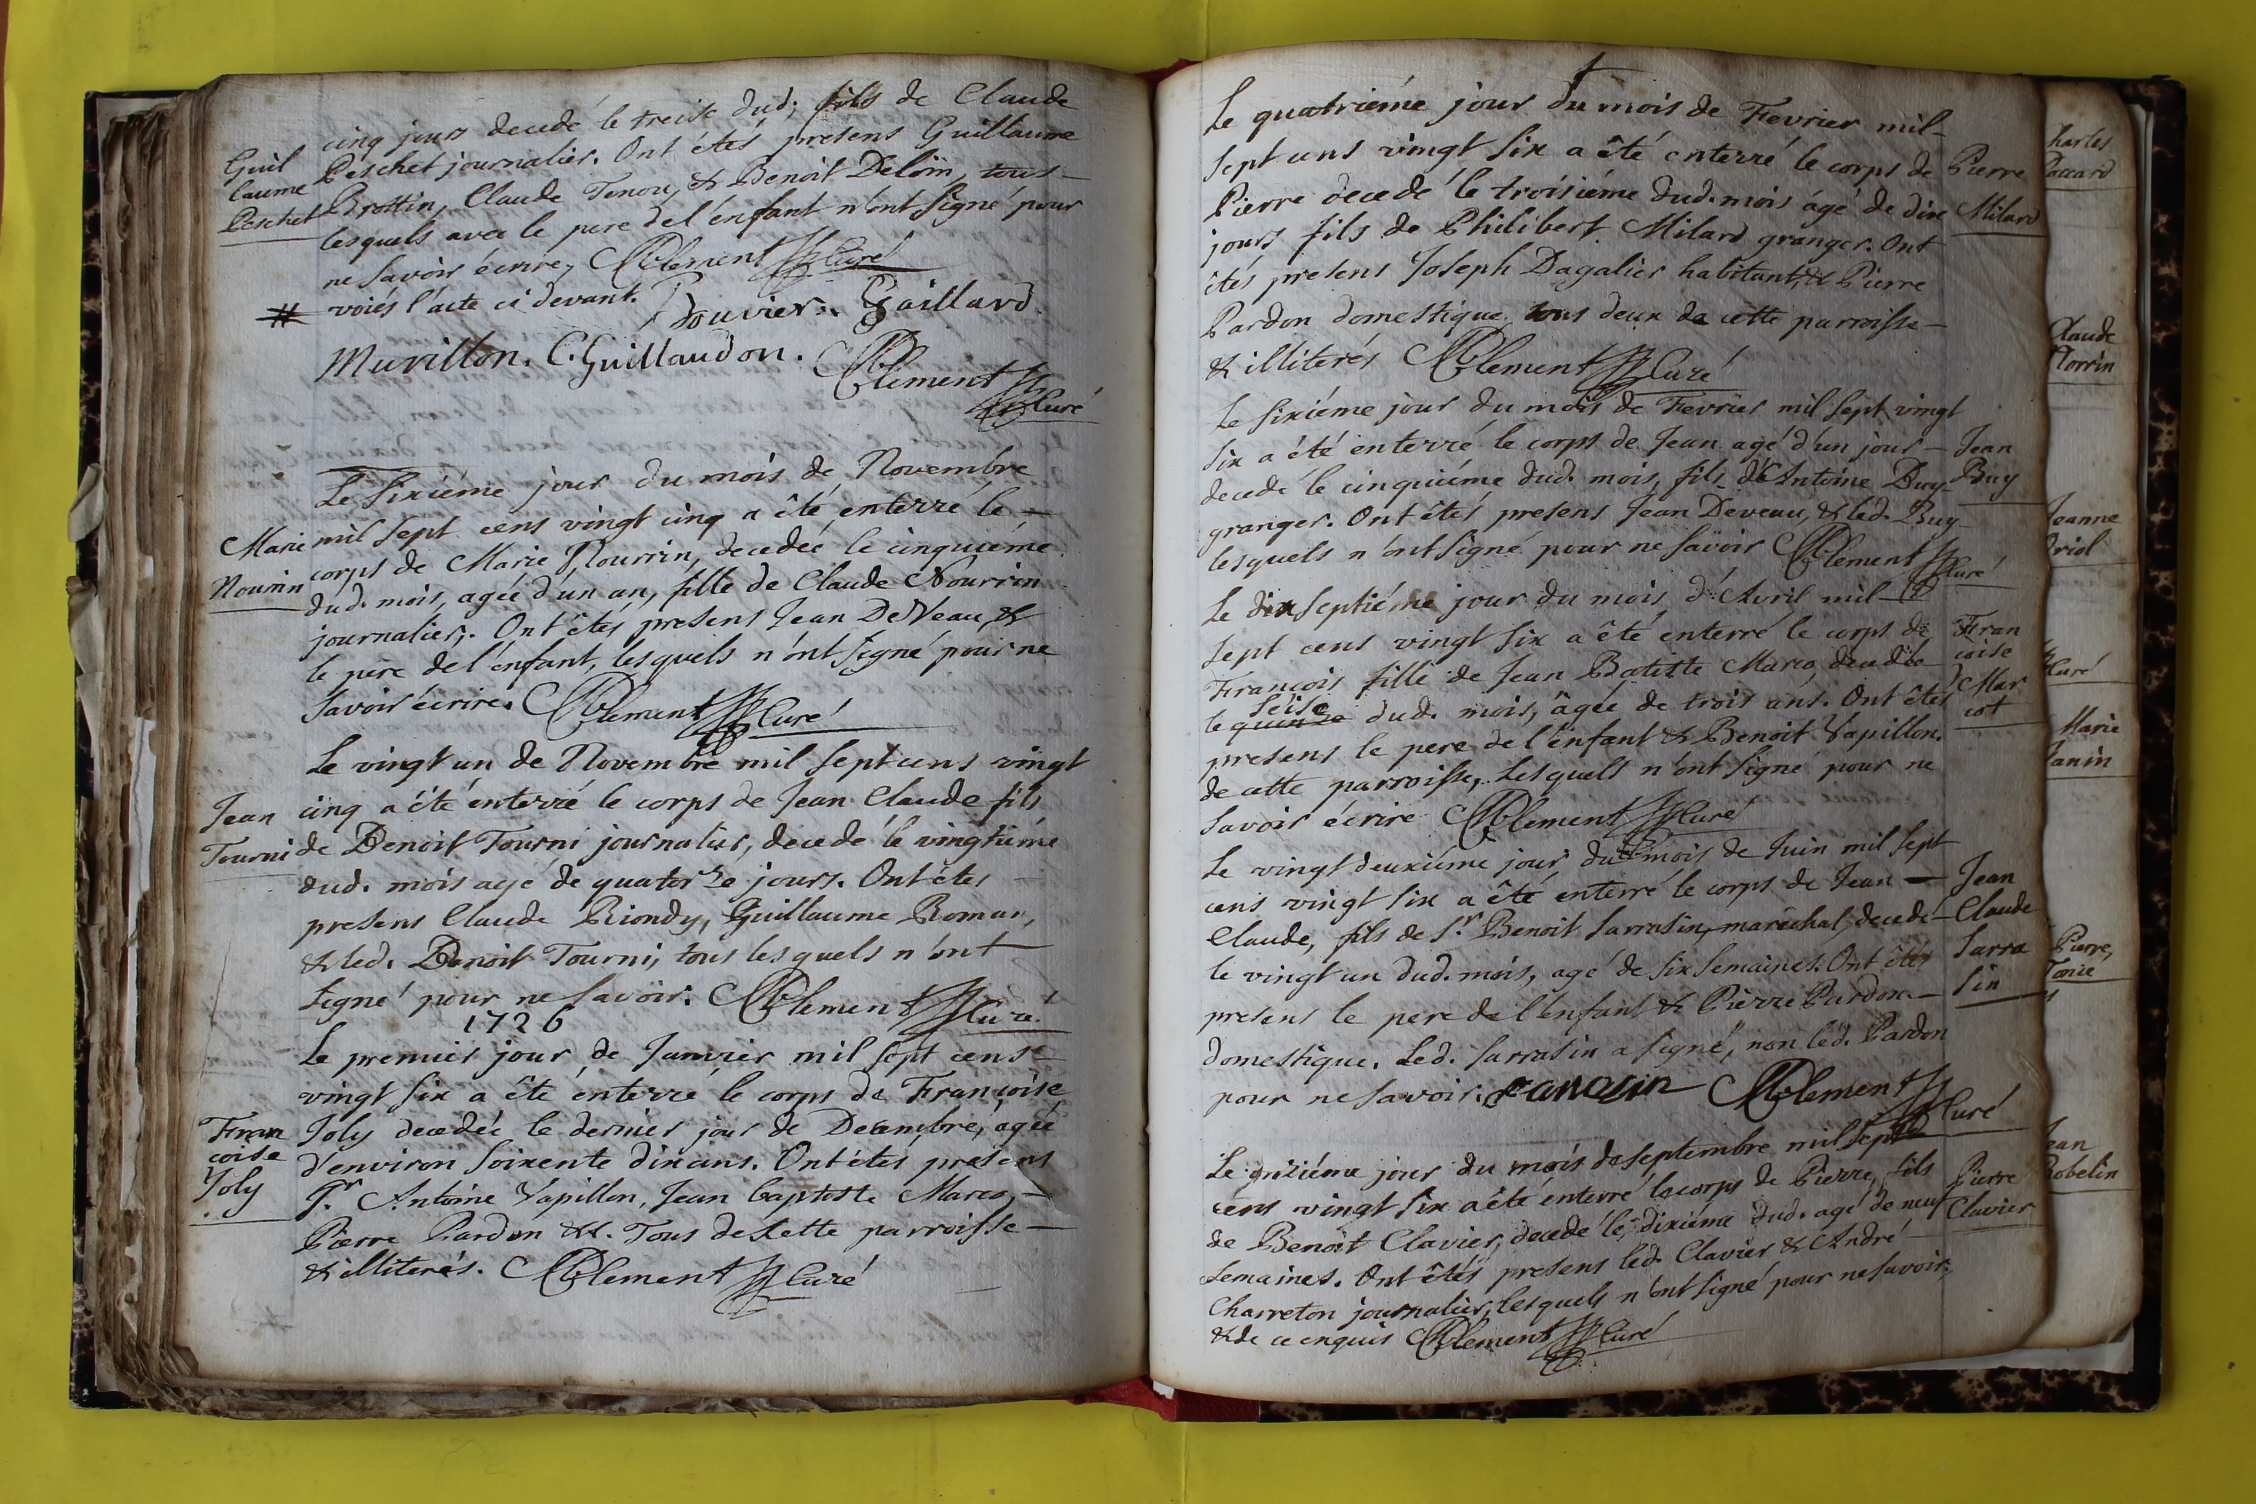 cinq jours decedé le treise dud; fils de Claude
Guil
laume
Peschet
Peschet journalier. Ont étés presens Guillaume
Brottin, Claude Tonou, & Benoit Deloïn, tous
lesquels avec le pere de l'énfant n'ont signé pour
ne savoir écrire, Clement Curé
# voiés l'acte ci devant. Bouvier. Gaillard.
Muvillon. C. Guillaudon. Clement
Curé
Le sixiéme jour du mois de Novembre
mil sept cens vingt cinq a êté énterré le
Marie
Nourrin
corps de Marie Nourrin, decedée le cinquiéme
dud. mois, agée d'un an, fille de Claude Nourrin
journalier. Ont êtés presens Jean DeVeau, &
le pere de l'énfant, lesquels n'ónt signé pour ne
savoir écrire. Clement Curé
Le vingt un de Novembre mil sept cens vingt
Jean
Tourni
cinq a êté énterré le corps de Jean Claude fils
de Benoit Tourni journalier, decedé le vingtiéme
dud. mois agé de quatorze jours. Ont êtes
presens Claude Riondy, Guillaume Roman,
& led. Benoit Tourni, tous lesquels n'ónt
signé pour ne savoir. Clement Curé
1726
Le premier jour de Janvier mil sept cens
vingt six a êté énterré le corps de Françoise
Fran
coise
Joly
Joly decedée le dernier jour de Decembre, agée
d'environ soixente dix ans. Ont étes presens
Antoine Vapillon, Jean baptiste Marco,
Pierre Pardon &c. Tous de cette parroisse
& illiterés. Clement Curé
Le quatriéme jour du mois de Fievrier mil
sept cens vingt six a êté enterré le corps de
Pierre
Milard
Pierre decedé le troisiéme dud. mois ágé de dix
jours, fils de Philibert Milard granger. Ont
êtés presens Joseph Dagalier habitant, & Pierre
Pardon domestique tous deux de cette parroisse
& illiterés Clement Curé
Le sixiéme jour du mois de Fievrier mil sept vingt
six a été enterré le corps de Jean agé d'un jour
Jean
Buy
decedé le cinquiéme dud. mois, fils d'Antoine Buy
granger. Ont êtés presens Jean Deveau, & led. Buy
lesquels n'ónt signé pour ne savoir Clement Curé
Le dixseptiéme jour du mois d'Avril mil
sept cens vingt six a êté enterré le corps de
Fran
coise
Mar
cot
François fille de Jean Batiste Marco, decedée
seise
le quinze dud. mois, âgée de trois ans. Ont êtes
presens le pere de l'énfant & Benoit Vapillon
de cette parroisse, Lesquels n'ont signé pour ne
savoir écrire Clement Curé
Le vingtdeuxiéme jour du mois de Juin mil sept
cens vingt six a êté enterré le corps de Jean
Jean
Claude
Sarra
sin
Claude, fils de Sr. Benoit Sarrasin, maréchal, decedé
le vingt un dud. mois, agé de six semaines. Ont êtés
presens le pere de l'énfant & Pierre Pardon
domestique. Led. Sarrasin a signé, non led. Pardon
pour ne savoir. Sarrasin Clement
Curé
Le onziéme jour du mois de Septembre mil sept
cens vingt six a êté énterré le corps de Pierre, fils
Pierre
Clavier
de Benoît Clavier, decedé le dixiéme dud. agé de neuf
semaines. Ont êtés presens led. Clavier & André
Charreton journalier, lesquels n'ont signé pour ne savoir,
& de ce enquis Clement Curé
harles
Paccard
Claude
Jeanne
Curé
Marie
Janin
Pierre
Jean
Robelin